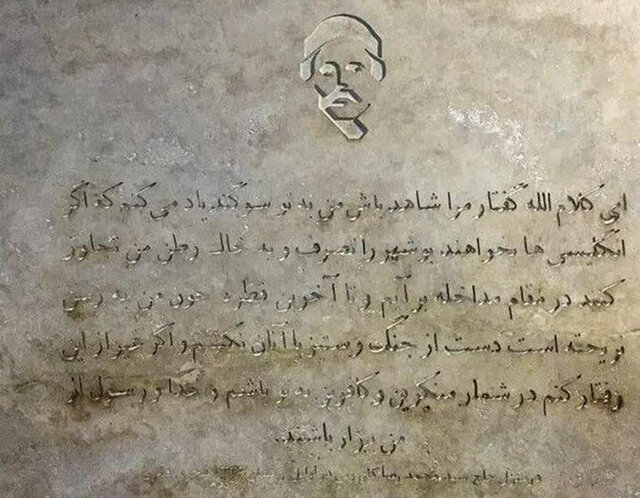 ای کلام الله گفتار مرا شاهد باش من به تو سوگند یاد می کنم که اگر
انگلیسی ها بخواهند بوشهر را تصرف و به خاک وطن من تجاوز
کنند در مقام مدافعه بر آیم و تا آخرین قطره خون من به زمین
نریخته است دست از جنگ و ستیز با آنان نکشم و اگر غیر از این
رفتار کنم در شمار منکرین و کافرین به تو باشم و خدا و رسول از
من بیزار باشند.
در منزل حاج سید محمد رضا